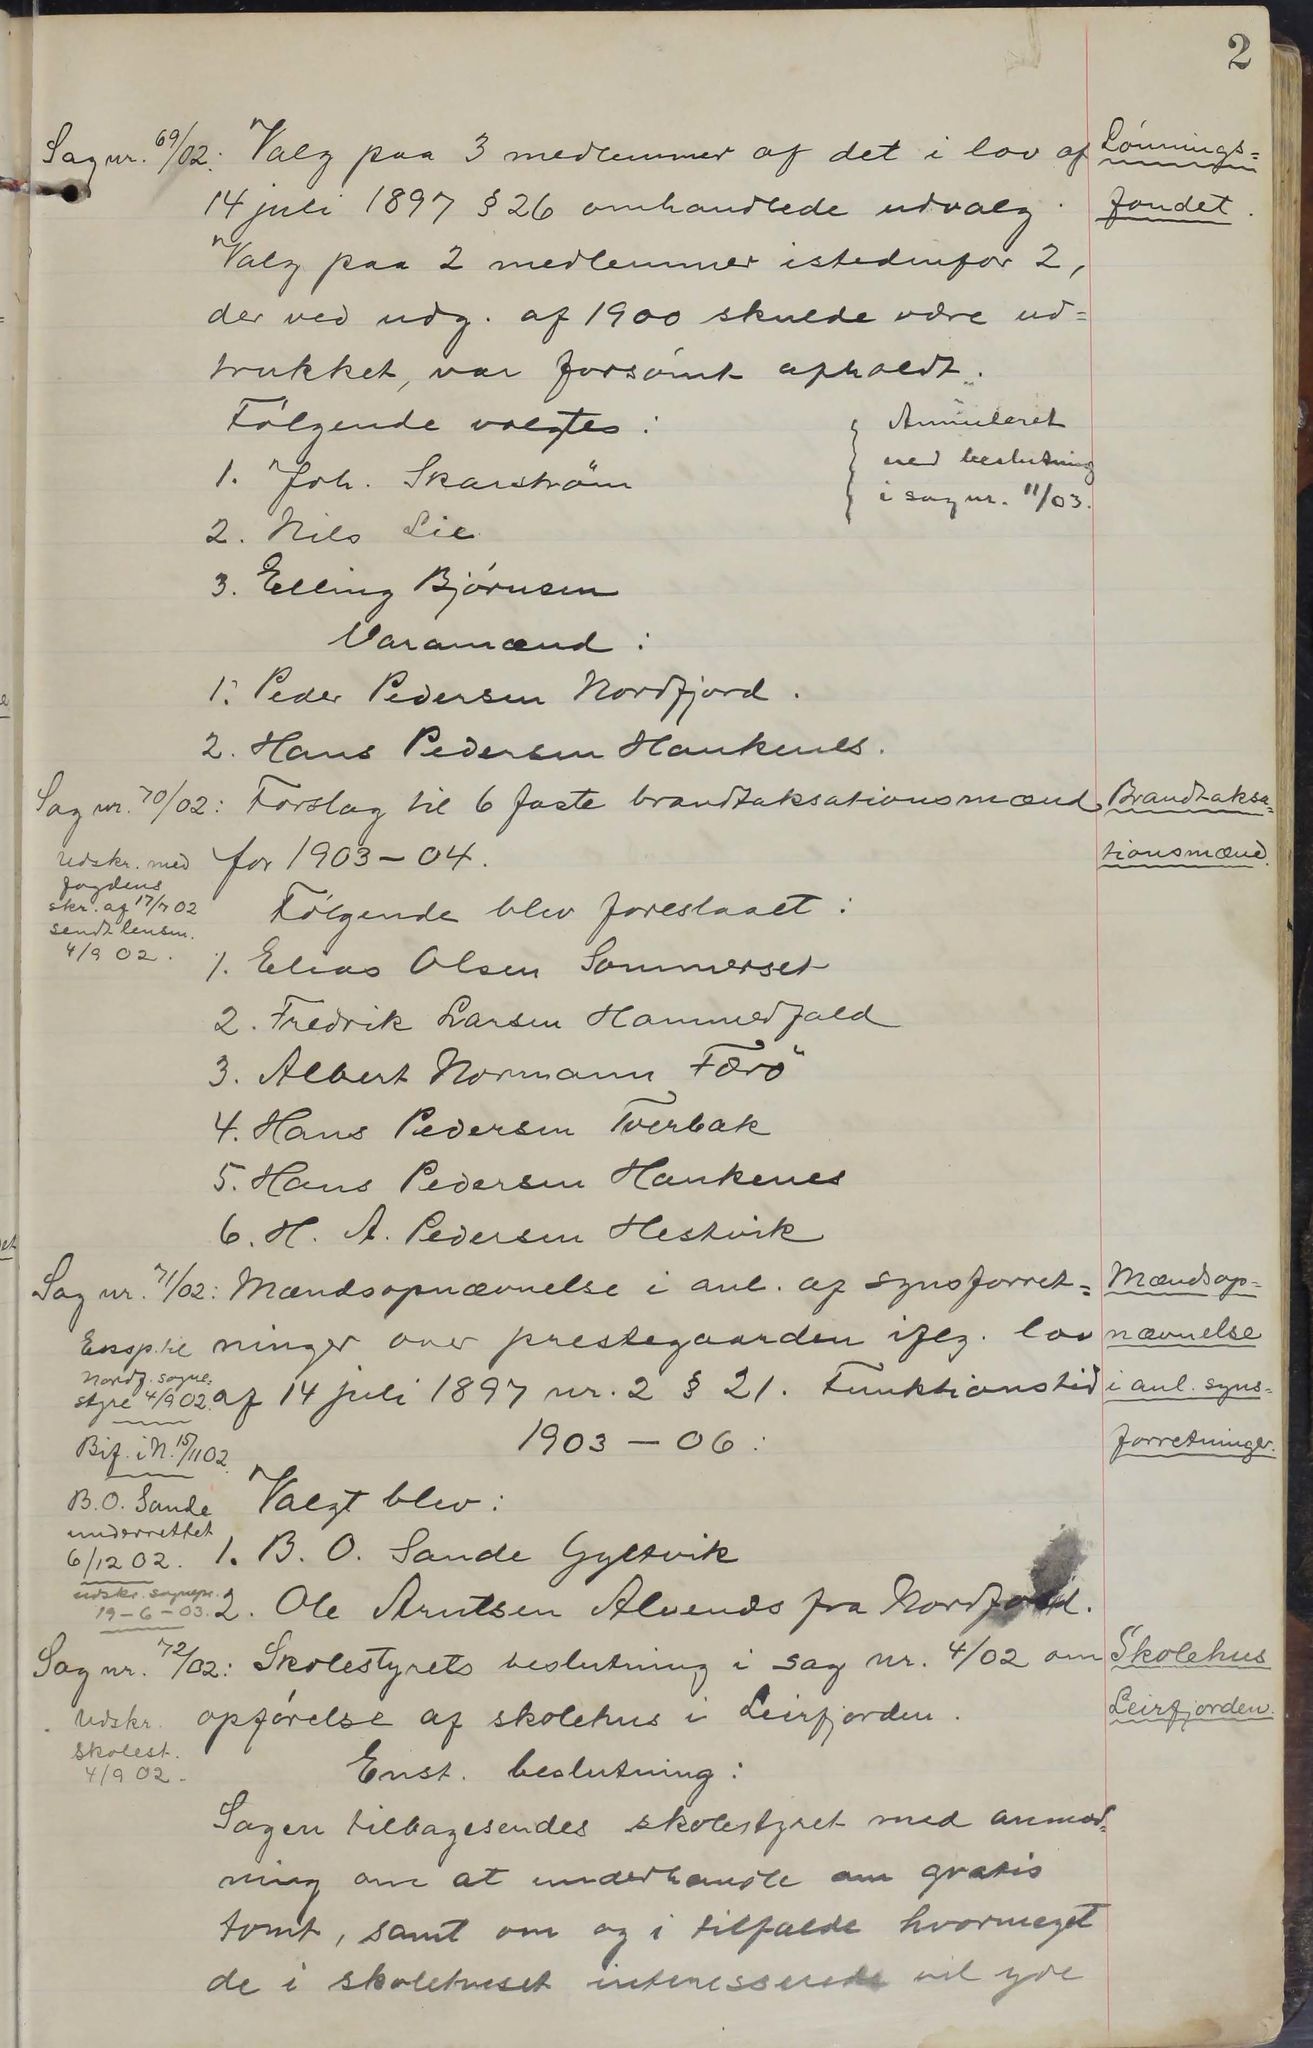 2
Sag nr. 69/02: Valg paa 3 medlemmer af det i lov af
Lønnings=
14 juli 1897 § 26 omhandlede udvalg.
fondet.
Valg paa 2 medlemmer istedenfor 2,
der ved udg. af 1900 skulde være ud=
trukket, var forsømt afholdt.
Følgende valgtes:
Annuleret
ved beslutning
i sag nr. 11/03.
1. Joh. Skarström
2. Nils Lie
3. Elling Bjørnsen
Varamænd:
1. Peder Pedersen Nordfjord.
2. Hans Pedersen Haukenes.
Sag nr. 70/02: Forslag til 6 faste brandtaksationsmænd
Brandtaksa=
for 1903-04.
tionsmænd.
Udskr. med
fogdens
skr. af 17/7 02
sendt lensm.
4/9 02.
Følgende blev foreslaaet:
1. Elias Olsen Sommerset
2. Fredrik Larsen Hammerfald
3. Albert Normann Færö
4. Hans Pedersen Tverbak
5. Hans Pedersen Haukenes
6. H. A. Pedersen Hestvik
Sag nr. 71/02: Mændsopnævnelse i anl. af synsforret=
Mændsop=
ninger over prestegaarden iflg. lov
nævnelse
af 14 juli 1897 nr. 2 § 21. Funktionstid
i anl. syns=
1903-06:
forretninger.
Eksp. til
Nordf. sogne=
styre 4/9 02.
Bif. i N. 15/11 02.
B. O. Sande
underrettet
6/12 02.
udskr. sognepr.
19-6-03.
Valgt blev:
1. B. O. Sande Gyltvik
2. Ole Arntsen Alvenes fra Nordfold.
Sag nr. 72/02: Skolestyrets beslutning i sag nr. 4/02 om
Skolehus
opførelse af skolehus i Leirfjorden.
Leirfjorden.
Udskr.
skolest.
4/9 02.
Enst. beslutning:
Sagen tilbagesendes skolestyret med anmod=
ning om at underhandle om gratis
tomt, samt om og i tilfælde hvormeget
de i skolehuset interesserede vil yde